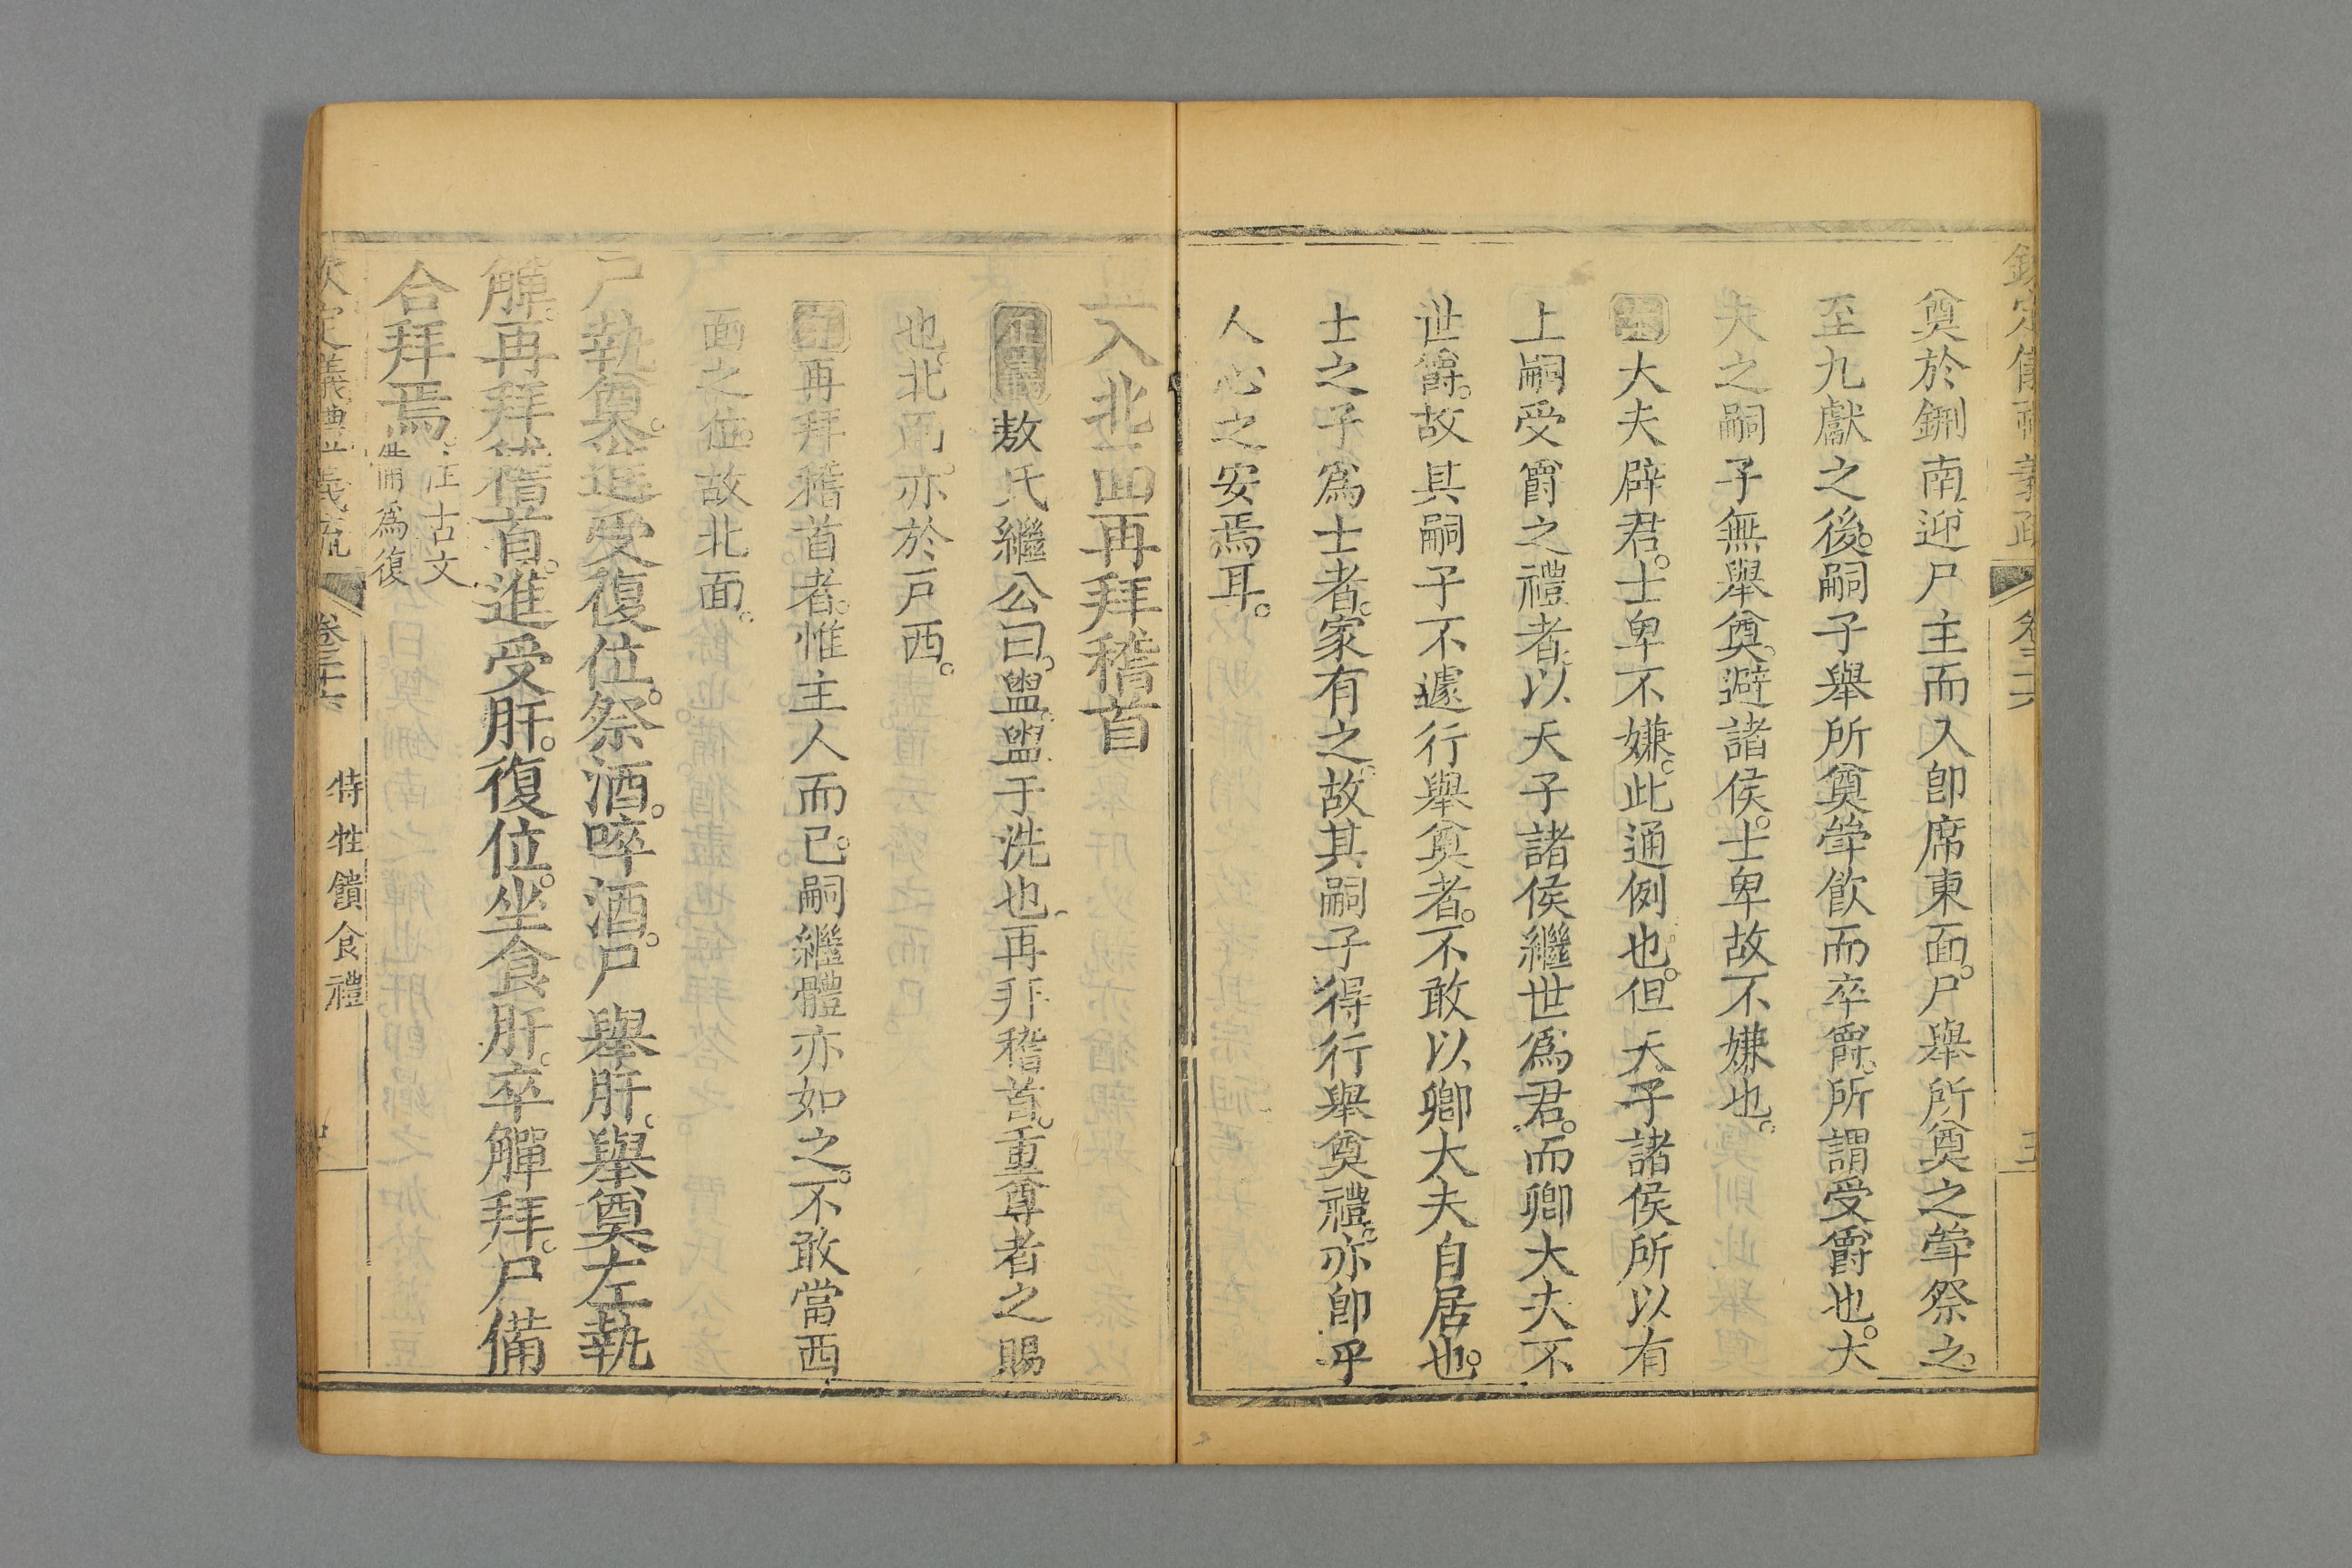 奠於鉶南迎尸主而入卽席東面尸舉所奠之斝祭之
至九獻之後嗣子舉所奠斝飲而卒爵所謂受爵也大
夫之嗣子無舉奠避諸侯士卑故不嫌也
大夫辟君士卑不嫌此通例也但天子諸侯所以有
上嗣受爵之禮者以天子諸侯繼世爲君而卿大夫不
世爵故其嗣子不遽行舉奠者不敢以卿大夫自居也
士之子爲士者家有之故其嗣子得行舉奠禮亦卽乎
人心之安焉耳
入北面再拜稽首
正義敖氏繼公曰盥盥于洗也再拜稽首重尊者之賜
也北面亦於戸西
再拜稽首者惟主人而已嗣繼體亦如之不敢當西
面之位故北面
尸執奠進受復位祭酒啐酒尸舉肝舉奠左執
觶再拜稽首進受肝復位坐食肝卒觶拜尸備
合拜焉注古文
備爲復
欽定儀禮義疏 卷三十六 特牲饋食禮